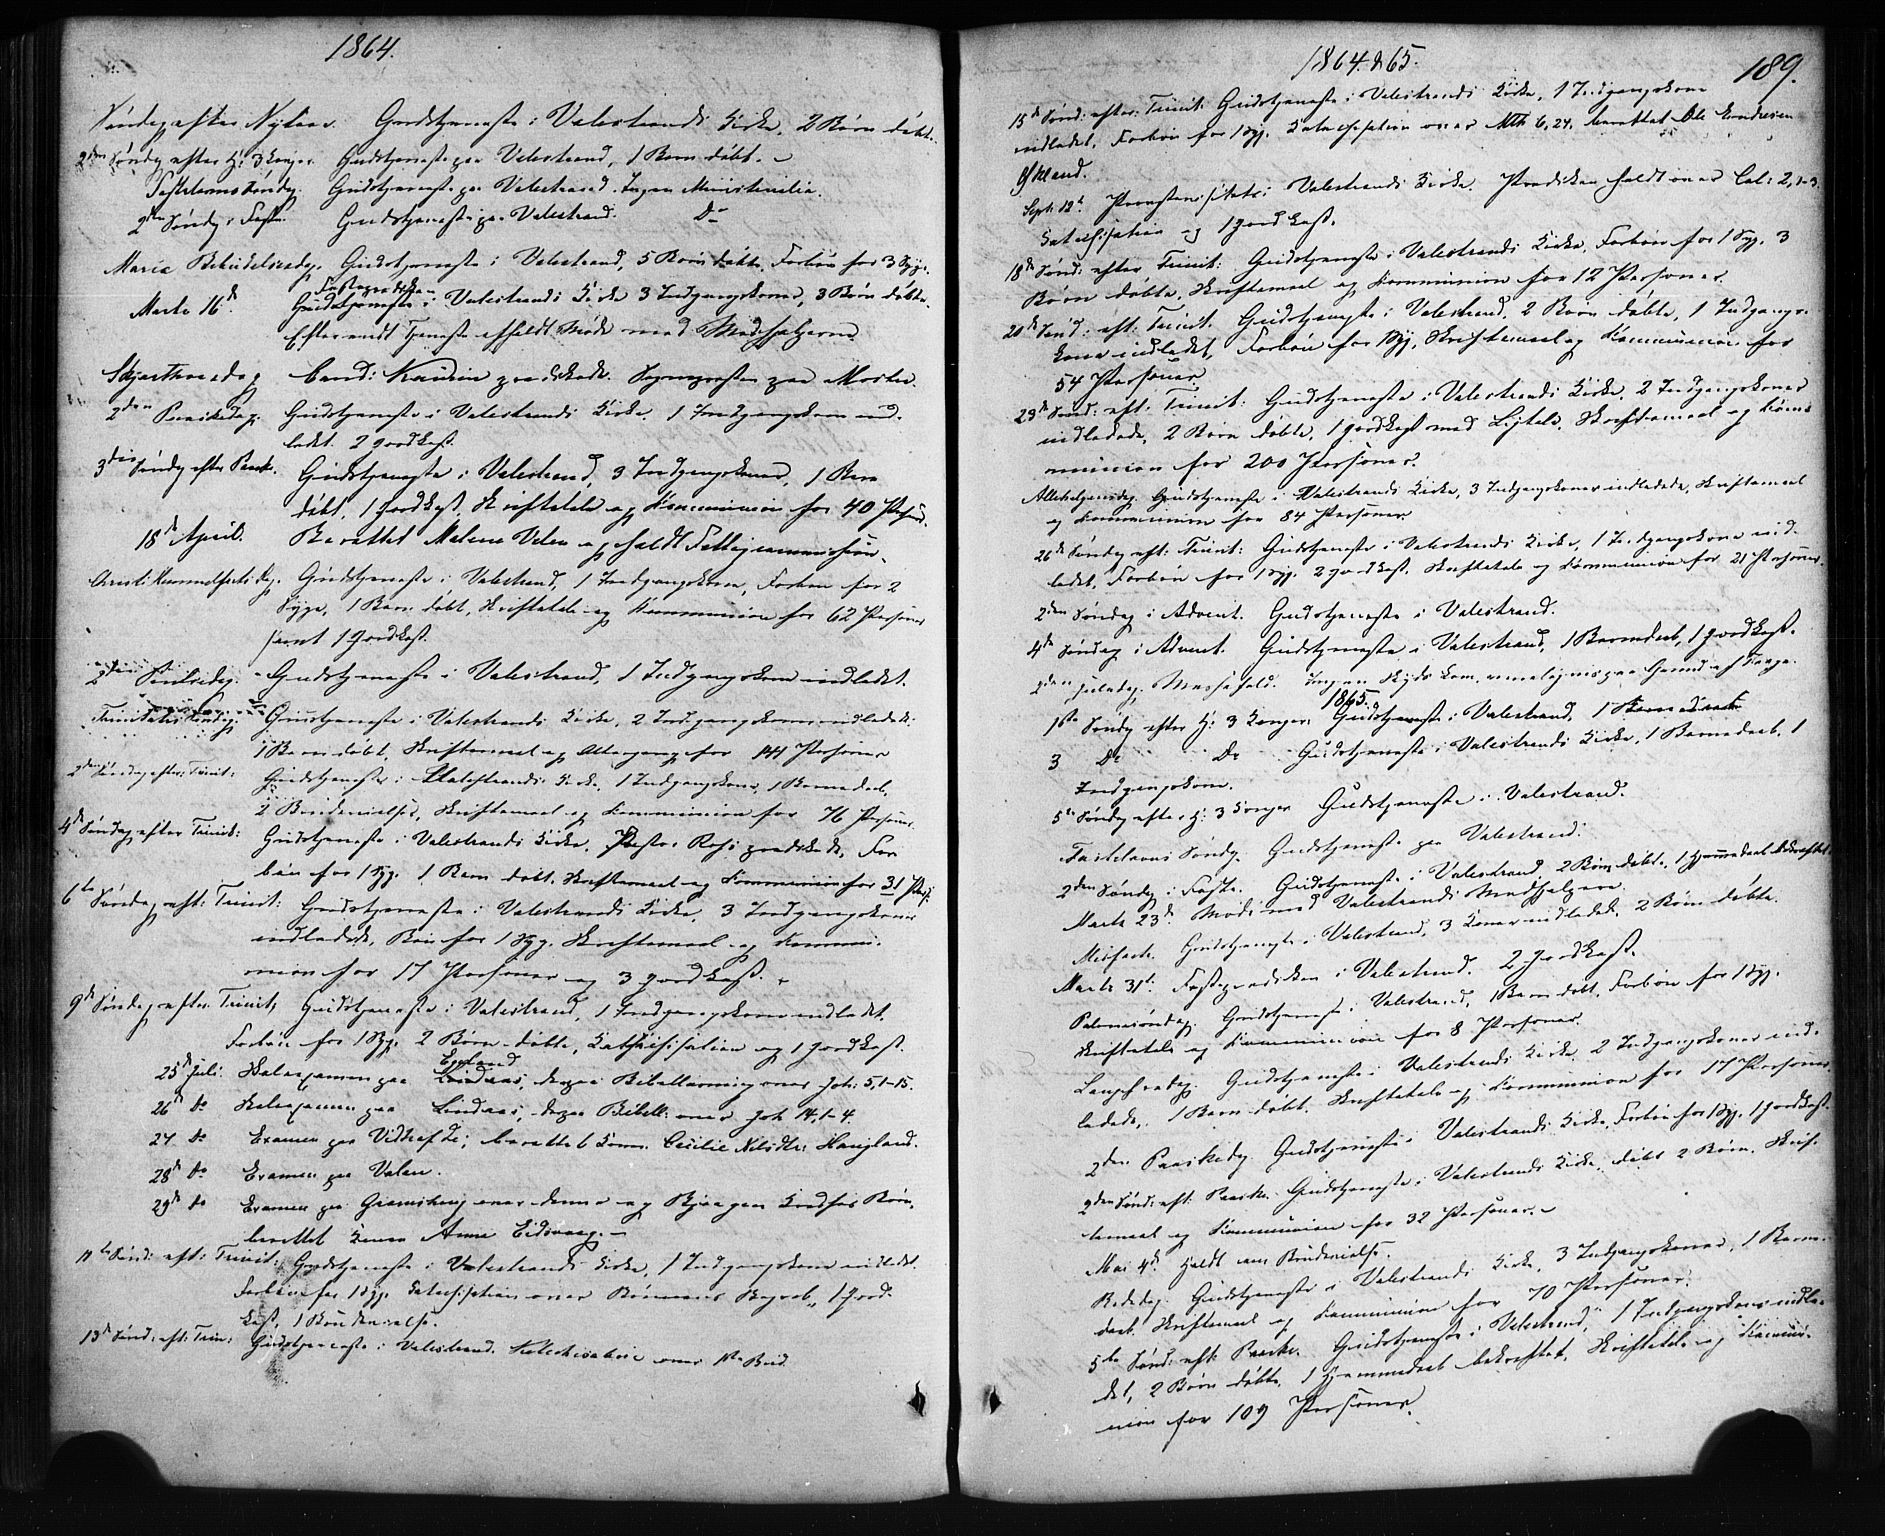 1864.
Søndag efter Nytaar. Gudstjeneste i Valestrands Kirke, 2 Børn døbt.
2den Søndag efter H: 3 Konger. Gudstjeneste paa Valestrand, 1 Barn døbt. –
Fastelavns Søndag. Gudstjeneste paa Valestrand. Ingen Ministerialia.
2den Søndag i Faste. Gudstjeneste paa Valestrand. Do
Mariæ Bebudelsesdag. Gudstjeneste i Valestrand, 5 Børn døbte, Forbøn for 3 Syge.
Marts 16de Fasteprædiken i Valestrands Kirke 3 Indgangskoner, 3 Børn døbte.
Efter endt Tjeneste afholdt Møde med Medhjelperne
Skjærthorsdag Cand: Kaurin prædikede. Sognepresten paa Moster.
2den Paaskedag. Gudstjeneste i Valestrands Kirke. 1 Indgangskone ind-
ledet. 2 Jordkast.
3die Søndag efter Paaske. Gudstjeneste i Valestrand, 3 Indgangskoner, 1 Barn
døbt. 1 Jordkast, Skriftetale og Kommunion for 40 Person.
18de April. Berettet Malene Valen og holdt Fattigcommission.
Christi Himmelfarts Dag. Gudstjeneste i Valestrand, 1 Indgangskone, Forbøn for 2
Syge, 1 Barn døbt, Skriftetale og Kommunion for 62 Personer
samt 1 Jordkast.
2den Pintsedag. Gudstjeneste i Valestrand, 1 Indgangskone indledet.
Trinitatis Søndag. Gudstjeneste i Valestrands Kirke, 2 Indgangskoner indledede.
1 Barn døbt, Skriftemaal og Altergang for 141 Personer
2den Søndag efter Trinit: Gudstjeneste i Valestrands Kirke. 1 Indgangskone, 1 Barnedaab,
2 Brudevielser, Skriftemaal og Kommunion for 76 Personer
4de Søndag efter Trinit: Gudstjeneste i Valestrands Kirke. Pastor prædikede, For-
bøn for 1 Syg. 1 Barn døbt. Skriftemaal og Kommunion for 31 Pers.
6te Søndag eft: Trinit: Gudstjeneste i Valestrands Kirke, 3 Indgangskoner
indledede, Bøn for 1 Syg. Skriftemaal og Kommu-
nion for 17 Personer og 3 Jordkast.
9de Søndag efter Trinit, Gudstjeneste i Valestrand, 1 Indgangskone indledet.
Forbøn for 1 Syg. 2 Børn døbte, Kathekisation og 1 Jordkast.
25de Juli. Skoleexamen paa Økland, derpaa Bibellæsning over Joh: 5, 1-15.
26de Do Skoleexamen paa Lindaas, derpaa Bibell: over Joh 14, 1-4.
27 do Examen paa; berettet Kone Cecilie Nilsdtr: Haugland.
28de do Examen paa Valen.
29de do Examen paa Børn.
berettet Konen Anna Eidsvaag. –
11te Sønd: eft: Trinit: Gudstjeneste i Valestrands Kirke, 1 Indgangskone indledet.
Forbøn for 1 Syg. Katechisation over, 1 Jord-
kast, 1 Brudevielse.
13de Sønd: eft: Trin: Gudstjeneste i Valestrand. Katechisation over 1ste Bud.
1864. & 65.
189.
15de Sønd: efter Trinit: Gudstjeneste i Valestrands Kirke, 1 Indgangskone
indledet, Forbøn for 1 Syg. Katechisation over Mth 6,24. berettet Ole Endresen
Økland.
Septb 12te Provstevisitats i Valestrands Kirke. Prædiken holdt over Col: 2, 1-3.
Katechisation og 1 Jordkast.
18de Sønd: efter Trinit: Gudstjeneste i Valestrands Kirke, Forbøn for 1 Syg. 3
Børn døbte, Skriftemaal og Kommunion for 12 Personer
20de Sønd: eft: Trinit. Gudstjeneste i Valestrand. 2 Børn døbte, 1 Indgangs-
kone indledet, Forbøn for 1 Syg, Skriftemaal og Kommunion for
54 Personer
23de Sønd: eft: Trinit: Gudstjeneste i Valestrands Kirke, 2 Indgangskoner
indledede, 2 Børn døbte, 1 Jordkast med Ligtale, Skriftemaal og Kom-
munion for 200 Personer.
Allehelgensdag. Gudstjeneste i Valestrands Kirke, 3 Indgangskoner indledede, Skriftemaal
og Kommunion for 84 Personer.
26de Søndag eft: Trinit: Gudstjeneste i Valestrands Kirke, 1 Indgangskone ind-
ledet, Forbøn for 1 Syg. 2 Jordkast. Skriftetale og Kommunion for 21 Personer.
2den Søndag i Advent. Gudstjeneste i Valestrand.
4de Søndag i Advent. Gudstjeneste i Valestrand, 1 Barnedaab, 1 Jordkast.
2den Juledag. Messefald. Ingen Skyds kom,
1865.
1ste Søndag efter H: 3 Konger. Gudstjeneste i Valestrand, 1 Barnedaab
3 Do Do Gudstjeneste i Valestrands Kirke, 1 Barnedaab, 1
Indgangskone.
5te Søndag efter H: 3 Konger Gudstjeneste i Valestrand.
Fastelavns Søndag. Gudstjeneste paa Valestrand.
2den Søndag i Faste. Gudstjeneste i Valestrand, 2 Børn døbte, 1 Hjemmedaab bekræftet.
Marts 23de Møde med Valestrands Medhjelpere.
Midfaste. Gudstjeneste i Valestrand, 3 Koner indledede. 2 Børn døbte.
Marts 31te Fasteprædiken i Valestrand. 2 Jordkast.
Palmesøndag. Gudstjeneste i Valestrand, 1 Barn døbt, Forbøn for 1 Syg.
Skriftetale og Kommunion for 8 Personer.
Langfredag. Gudstjeneste i Valestrands Kirke, 2 Indgangskoner ind-
ledede, 1 Barn døbt. Skriftetale og Kommunion for 17 Personer.
2den Paaskedag Gudstjeneste i Valestrands Kirke, Forbøn for 1 Syg. 1 Jordkast.
2den Sønd: eft: Paaske. Gudstjeneste i Valestrands Kirke, døbt 2 Børn, Skrif-
temaal og Kommunion for 32 Personer. –
Mai 4de holdt een Brudevielse.
Bededag. Gudstjeneste i Valestrands Kirke, 3 Indgangskoner, 1 Barne-
daab. Skriftemaal og Kommunion for 70 Personer.
5te Sønd: eft: Paaske. Gudstjeneste i Valestrand, 1 Indgangskone indle-
det, 2 Børn døbte, 1 Hjemmedaab bekræftet, Skriftetale og Kommu-
nion for 109 Personer.